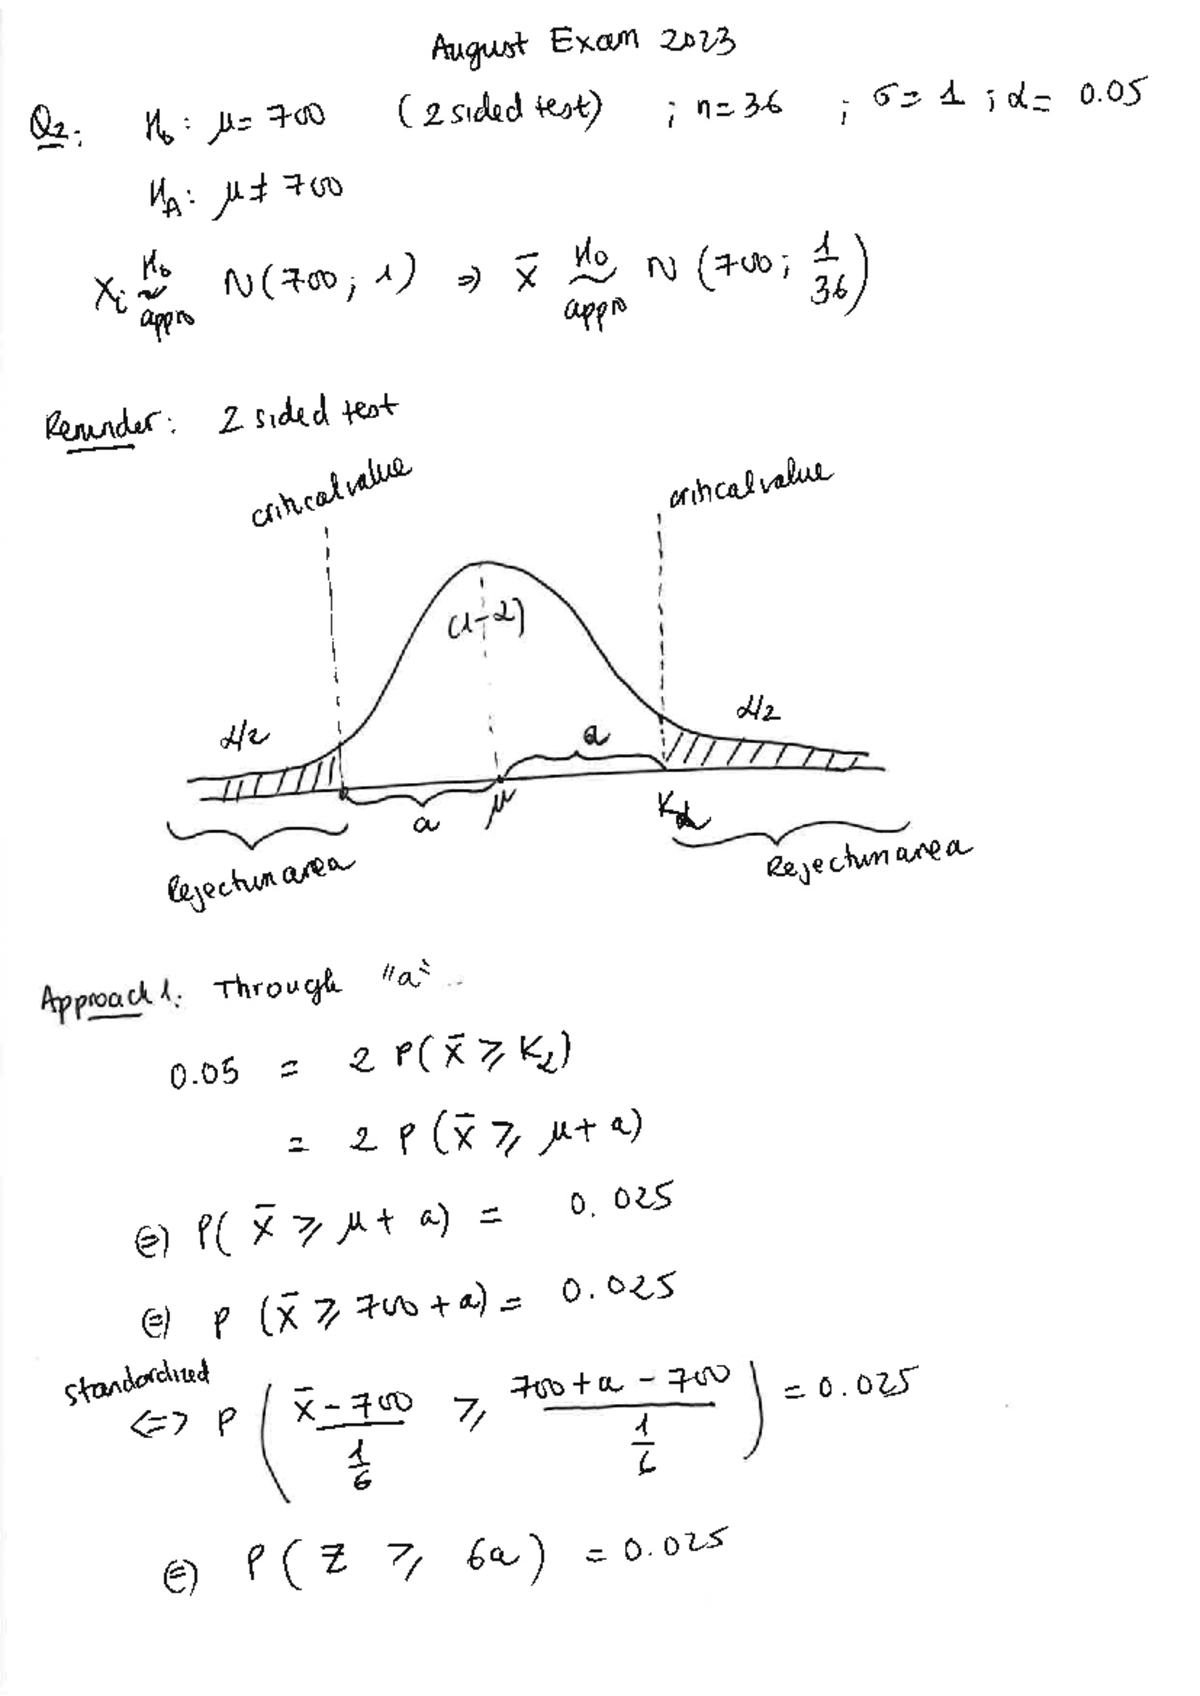 August Exam 2023
Q2: H₀: μ = 700 (2 sided test) ; n = 36 ; σ = 1 ; α = 0.05
H_A: μ ≠ 700
Xᵢ ~ H₀ appro N(700; 1) ⇒ x̄ ~ H₀ appro N(700; 1/36)
Reminder: 2 sided test
critical value
critical value
(1-α)
α/2
α/2
a
a
μ
K_α
Rejection area
Rejection area
Approach 1: Through "a"
0.05 = 2 P(x̄ ≥ K_α)
= 2 P(x̄ ≥ μ + a)
⇔ P(x̄ ≥ μ + a) = 0.025
⇔ P(x̄ ≥ 700 + a) = 0.025
standardized
⇔ P( (x̄ - 700)/(1/6) ≥ (700 + a - 700)/(1/6) ) = 0.025
⇔ P(Z ≥ 6a) = 0.025